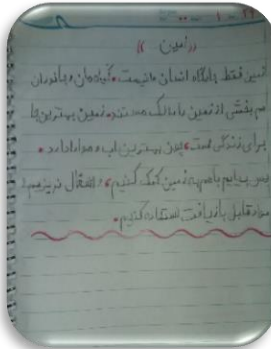 ((زمین))
زمین فقط پایگاه انسان ها نیست. گیاهان و جانوران
هم بخشی از زمین را مالک هستند. زمین بهترین جا
برای زندگی هست، چون بهترین آب و هوا را دارد.
پس بیایم با هم به زمین کمک کنیم، و آشغال نریزیم،
مواد قابل بازیافت استفاده کنیم.